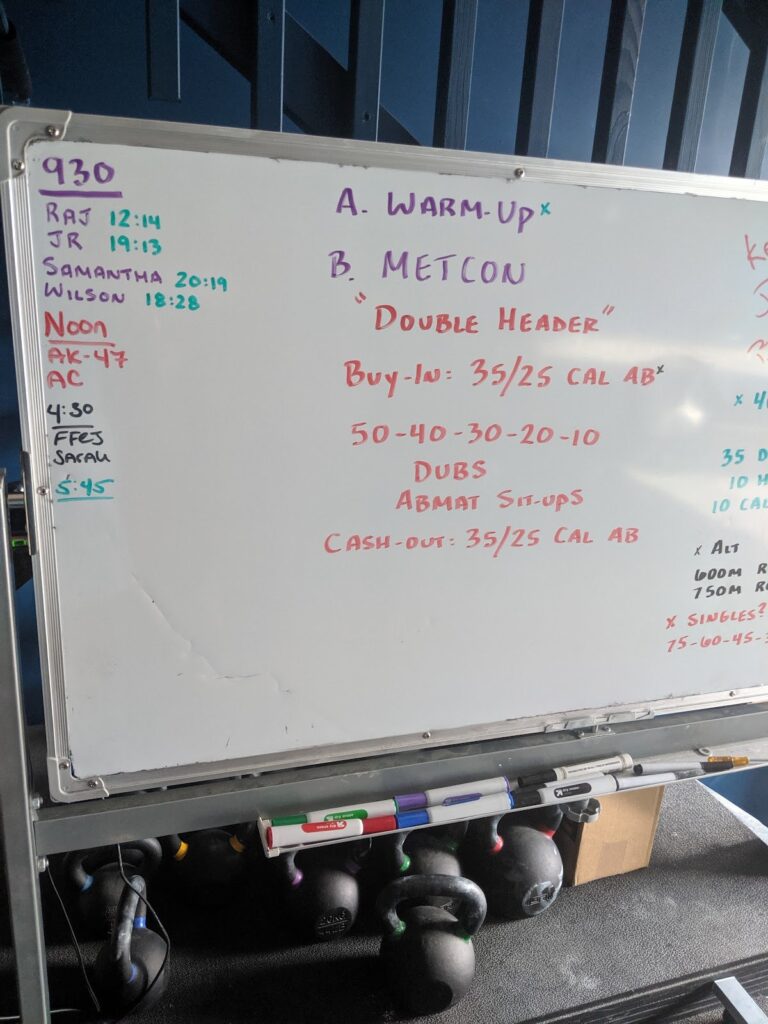 930
RAJ 12:14
JR 19:13
SAMANTHA 20:19
WILSON 18:28
NOON
AK-47
AC
4:30
FFEJ
SARAH
5:45
A. WARM-UP x
B. METCON
"DOUBLE HEADER"
BUY-IN: 35/25 CAL AB x
50-40-30-20-10
DUBS
ABMAT SIT-UPS
CASH-OUT: 35/25 CAL AB
35 D
10 H
10 CAL
x ALT
600M R
750M R
x SINGLES?
75-60-45-